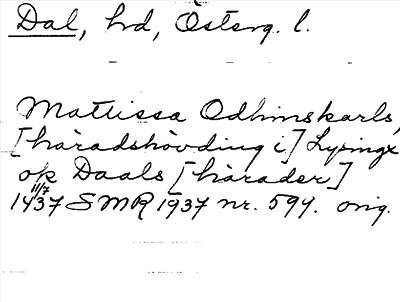 Dal, hrd, Österg. l.
Mattissa Odhinskarls,
[häradshövding i] Lysingx
ok Daals [härader]
11/7
1437 SMR 1937 nr. 594. orig.